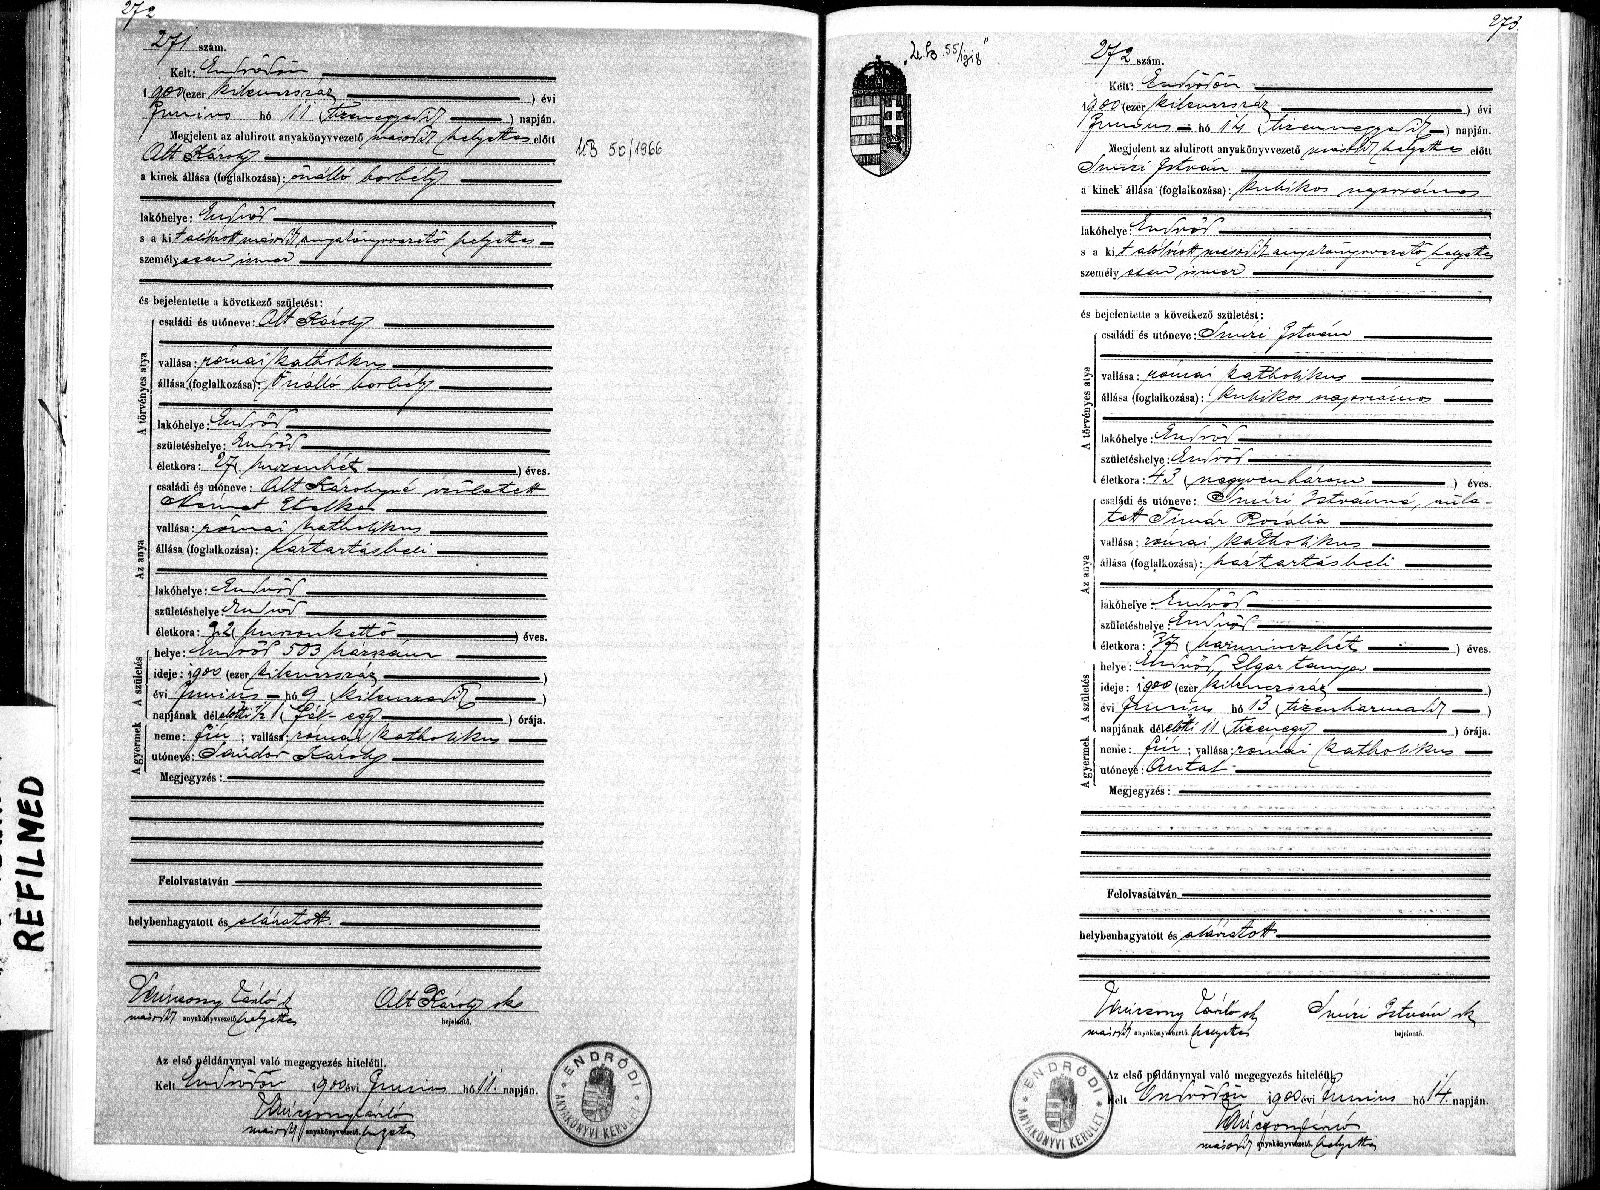 272
271 szám.
Kelt: Endrődön
1900 (ezer kilenczszáz ) évi
Junius hó 11 (tizenegyedik ) napján.
Megjelent az alulirott anyakönyvvezető második helyettes előtt
Alt Károly
a kinek állása (foglalkozása): önálló borbély
lakóhelye: Endrőd
s a kit alólirott második anyakönyvvezető helyettes
személyesen ismer
és bejelentette a következő születést:
A törvényes atya
családi és utóneve: Alt Károly
vallása: római katholikus
állása (foglalkozása): Önálló borbély
lakóhelye: Endrőd
születéshelye: Endrőd
életkora: 27 (huszonhét ) éves.
Az anya
családi és utóneve: Alt Károlyné született
Német Etelka
vallása: római katholikus
állása (foglalkozása): háztartásbeli
lakóhelye: Endrőd
születéshelye: Endrőd
életkora: 22 (huszonkettő ) éves.
A születés
helye: Endrőd 503 házszám
ideje: 1900 (ezer kilenczszáz )
évi Junius hó 9 (kilenczedik )
napjának délelőtti 1/2 1 (fél-egy ) órája.
A gyermek
neme: fiú ; vallása: római katholikus
utóneve: Sándor Károly
Megjegyzés:
Felolvastatván
helybenhagyatott és aláiratott.
Alt Károly sk
második anyakönyvvezető helyettes
bejelentő.
Az első példánynyal való megegyezés hiteléül.
Kelt Endrődön 1900 évi Junius hó 11. napján.
második anyakönyvvezető helyettes
ENDRŐDI ANYAKÖNYVI KERÜLET
UB 50/1966
REFILMED
273.
272 szám.
Kelt: Endrődön
1900 (ezer kilenczszáz ) évi
Junius hó 14 (tizennegyedik ) napján.
Megjelent az alulirott anyakönyvvezető második helyettes előtt
Imiri István
a kinek állása (foglalkozása): kubikos napszámos
lakóhelye: Endrőd
s a kit alólirott második anyakönyvvezető helyettes
személyesen ismer
és bejelentette a következő születést:
A törvényes atya
családi és utóneve: Imiri István
vallása: római katholikus
állása (foglalkozása): kubikos napszámos
lakóhelye: Endrőd
születéshelye: Endrőd
életkora: 43 (negyvenhárom ) éves.
Az anya
családi és utóneve: Imiri Istvánné, szüle-
tett Timár Rozália
vallása: római katholikus
állása (foglalkozása): háztartásbeli
lakóhelye: Endrőd
születéshelye: Endrőd
életkora: 37 (harminczhét ) éves.
A születés
helye: Endrőd, tanya
ideje: 1900 (ezer kilenczszáz )
évi Junius hó 13 (tizenharmadik )
napjának délelőtti 11 (tizenegy ) órája.
A gyermek
neme: fiú ; vallása: római katholikus
utóneve: Antal
Megjegyzés:
Felolvastatván
helybenhagyatott és aláiratott
Imiri István sk
második anyakönyvvezető helyettes
bejelentő.
Az első példánynyal való megegyezés hiteléül.
Kelt Endrődön 1900 évi Junius hó 14. napján.
második anyakönyvvezető helyettes
ENDRŐDI ANYAKÖNYVI KERÜLET